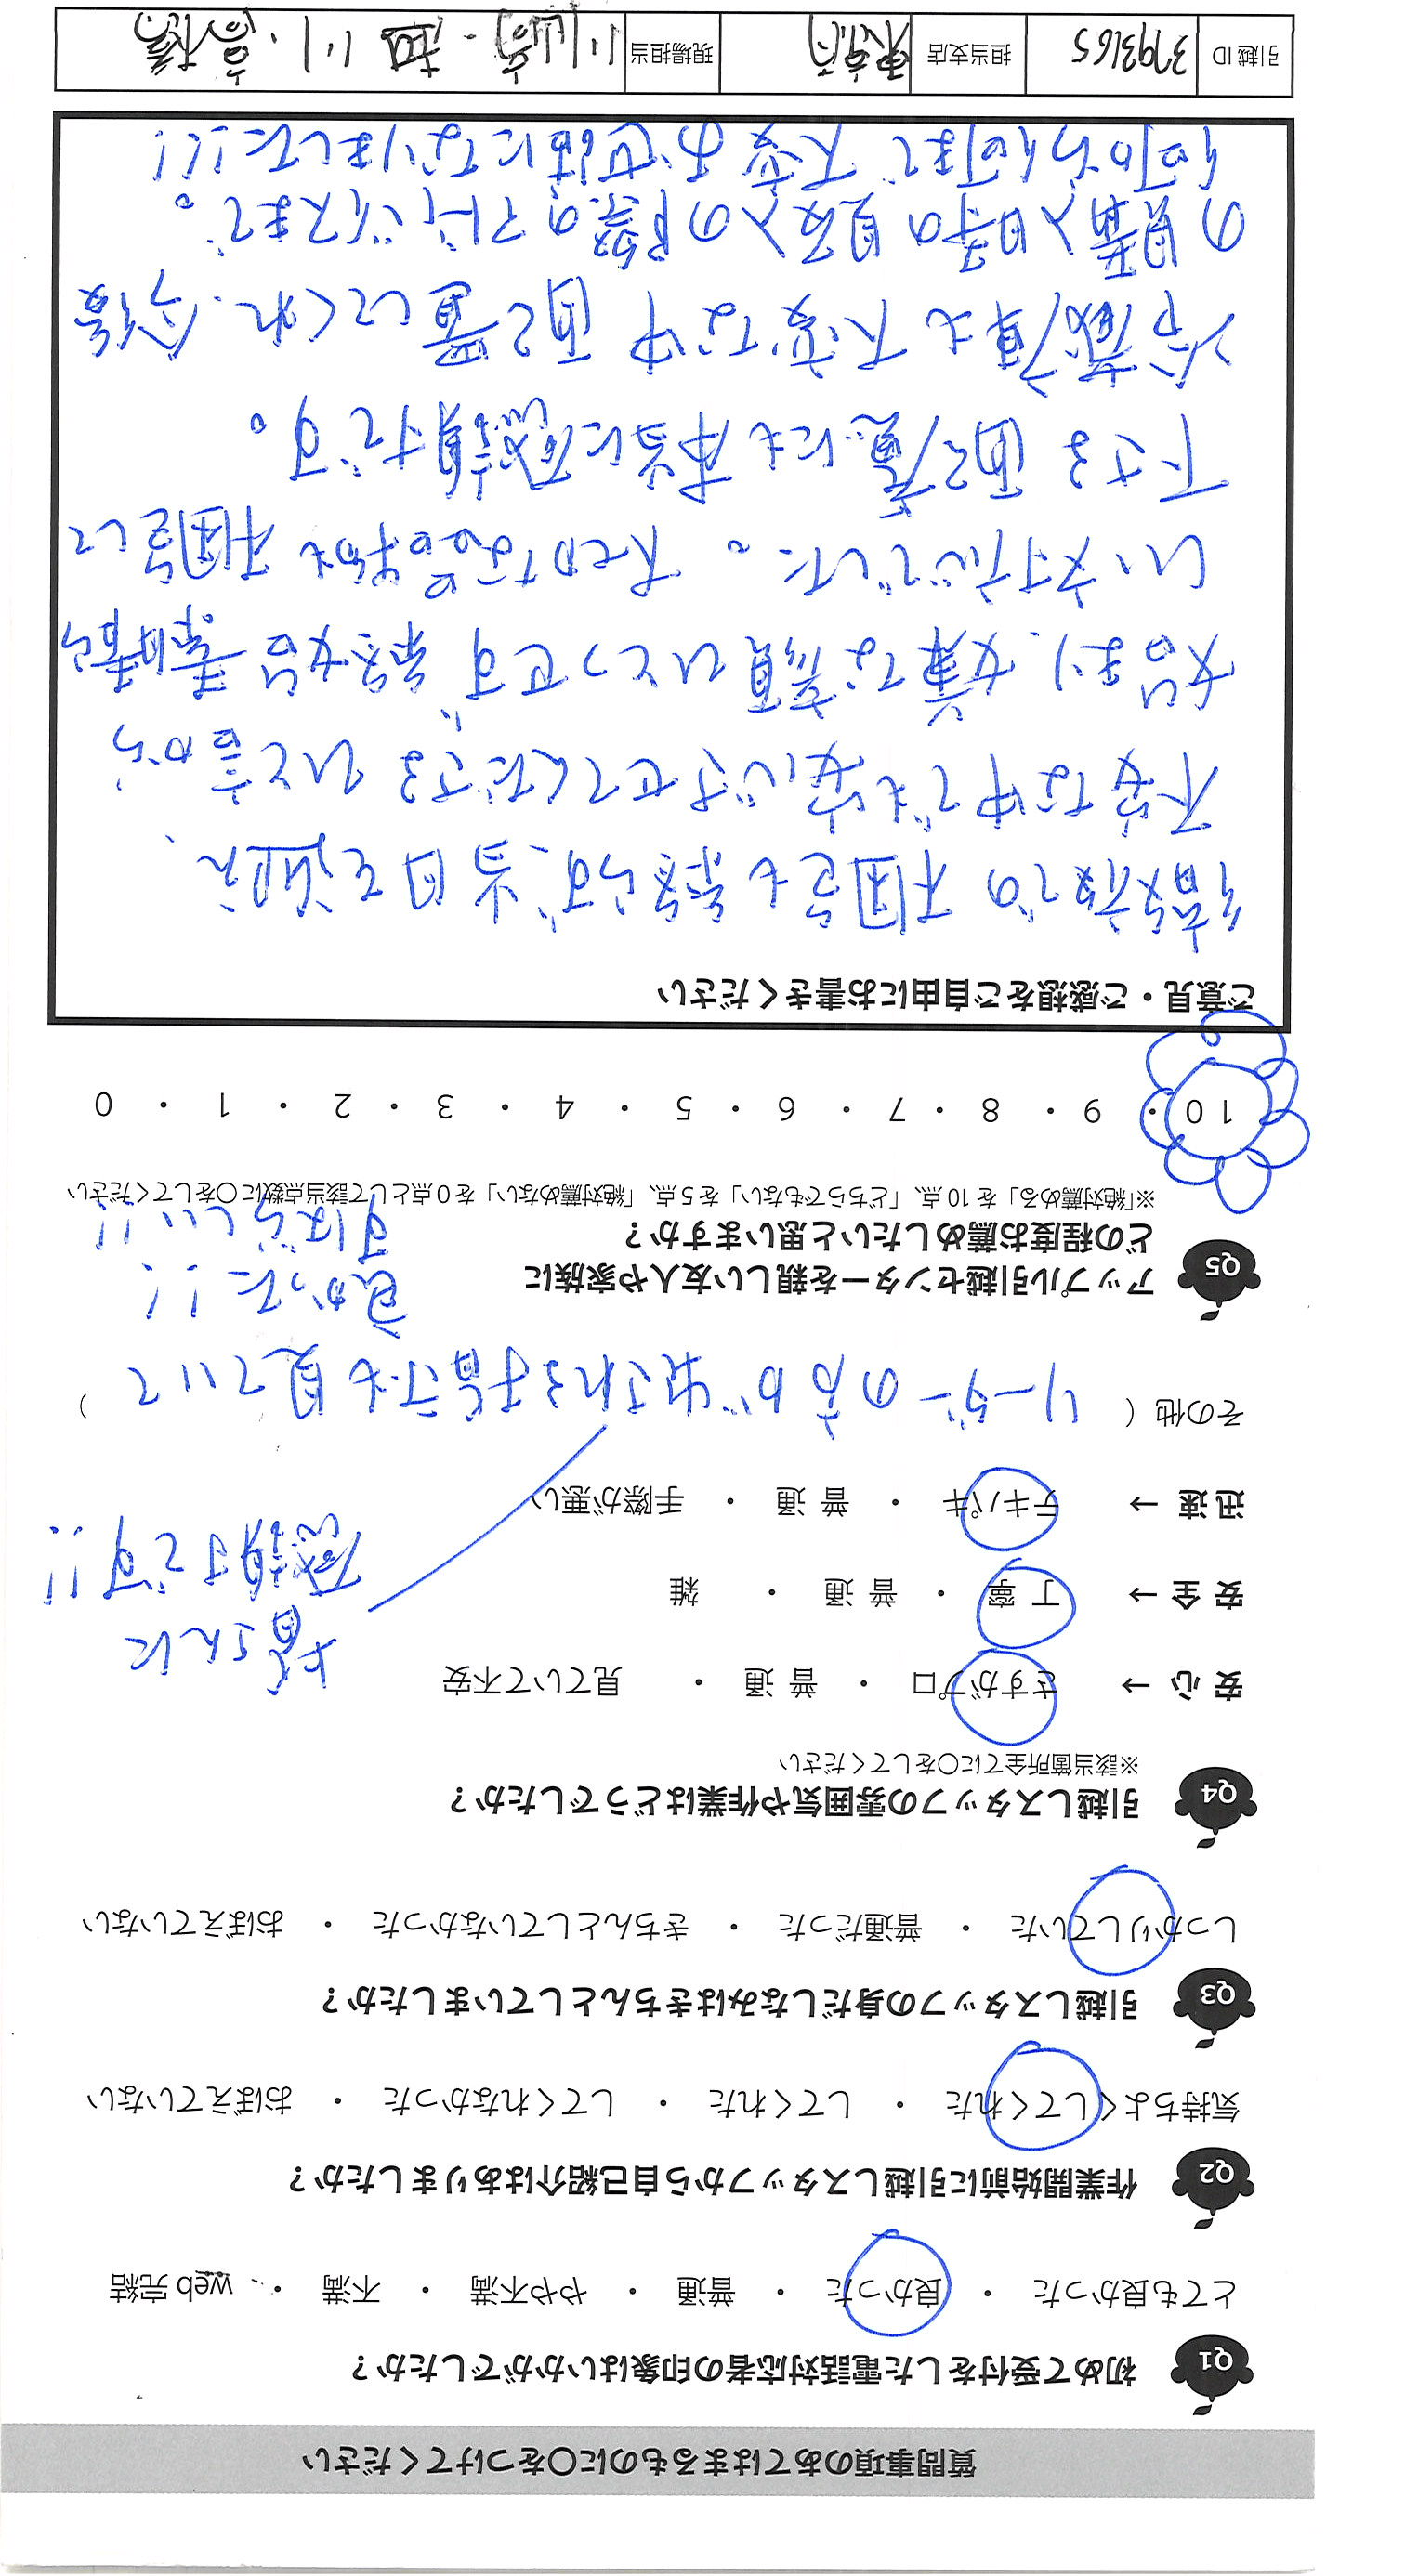 質問事項のあてはまるものに〇をつけてください
Q1 初めて受付をした電話対応者の印象はいかがでしたか？
とても良かった ・ 良かった ・ 普通 ・ やや不満 ・ 不満 ・ web 完結
Q2 作業開始前に引越しスタッフから自己紹介はありましたか？
気持ちよくしてくれた ・ してくれた ・ してくれなかった ・ おぼえていない
Q3 引越しスタッフの身だしなみはきちんとしていましたか？
しっかりしていた ・ 普通だった ・ きちんとしていなかった ・ おぼえていない
Q4 引越しスタッフの雰囲気や作業はどうでしたか？
※該当箇所全てに〇をしてください
安 心 → さすがプロ ・ 普 通 ・ 見ていて不安
安 全 → 丁 寧 ・ 普 通 ・ 雑
迅 速 → テキパキ ・ 普 通 ・ 手際が悪い
皆さんに
感謝です!!
その他（ リーダーの方が出される指示も見ていて ）
良かった!!
すばらしい!!
Q5 アップル引越センターを親しい友人や家族に
どの程度お薦めしたいと思いますか？
※「絶対薦める」を 10 点、「どちらでもない」を 5 点、「絶対薦めない」を 0 点として該当点数に〇をしてください
10 ・ 9 ・ 8 ・ 7 ・ 6 ・ 5 ・ 4 ・ 3 ・ 2 ・ 1 ・ 0
ご意見・ご感想をご自由にお書きください
結旅での 梱包も終らず、当日を迎え、
不安な中でも安心させてくださる ひと言から
始まり、丁寧な 荷積ひとつせず、終始 素晴ら
しい対応でした。 大切な品物も 梱包して
下さる 配慮にも 本当に感謝です。
冷蔵庫も 大変な中 配置してくれ、今後
の 買替え時の 買換えの際のアドバイスまで。
何から何まで 大変 お世話になりました!!!
引越 ID 3793165 担当支店 東京 現場担当 川崎・細川・高橋